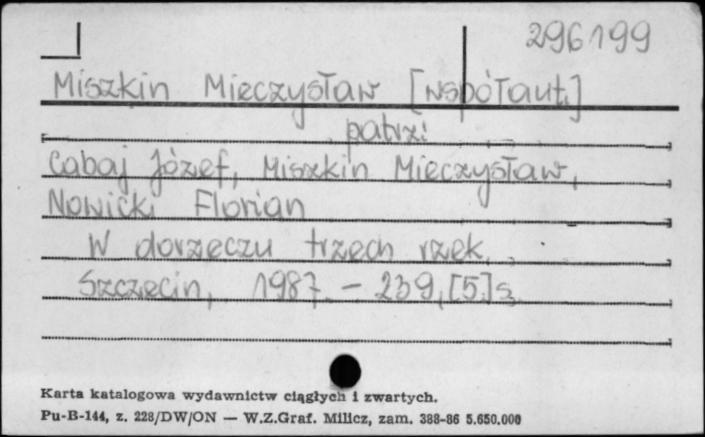 296199
Miszkin Mieczysław [współaut.]
patrz:
Cabaj Józef, Miszkin Mieczysław,
Nowicki Florian
W dorzeczu trzech rzek.
Szczecin, 1987. - 239,[5]s.
Karta katalogowa wydawnictw ciągłych i zwartych.
Pu-B-144, z. 228/DW/ON — W.Z.Graf. Milicz, zam. 388-86 5.650.000